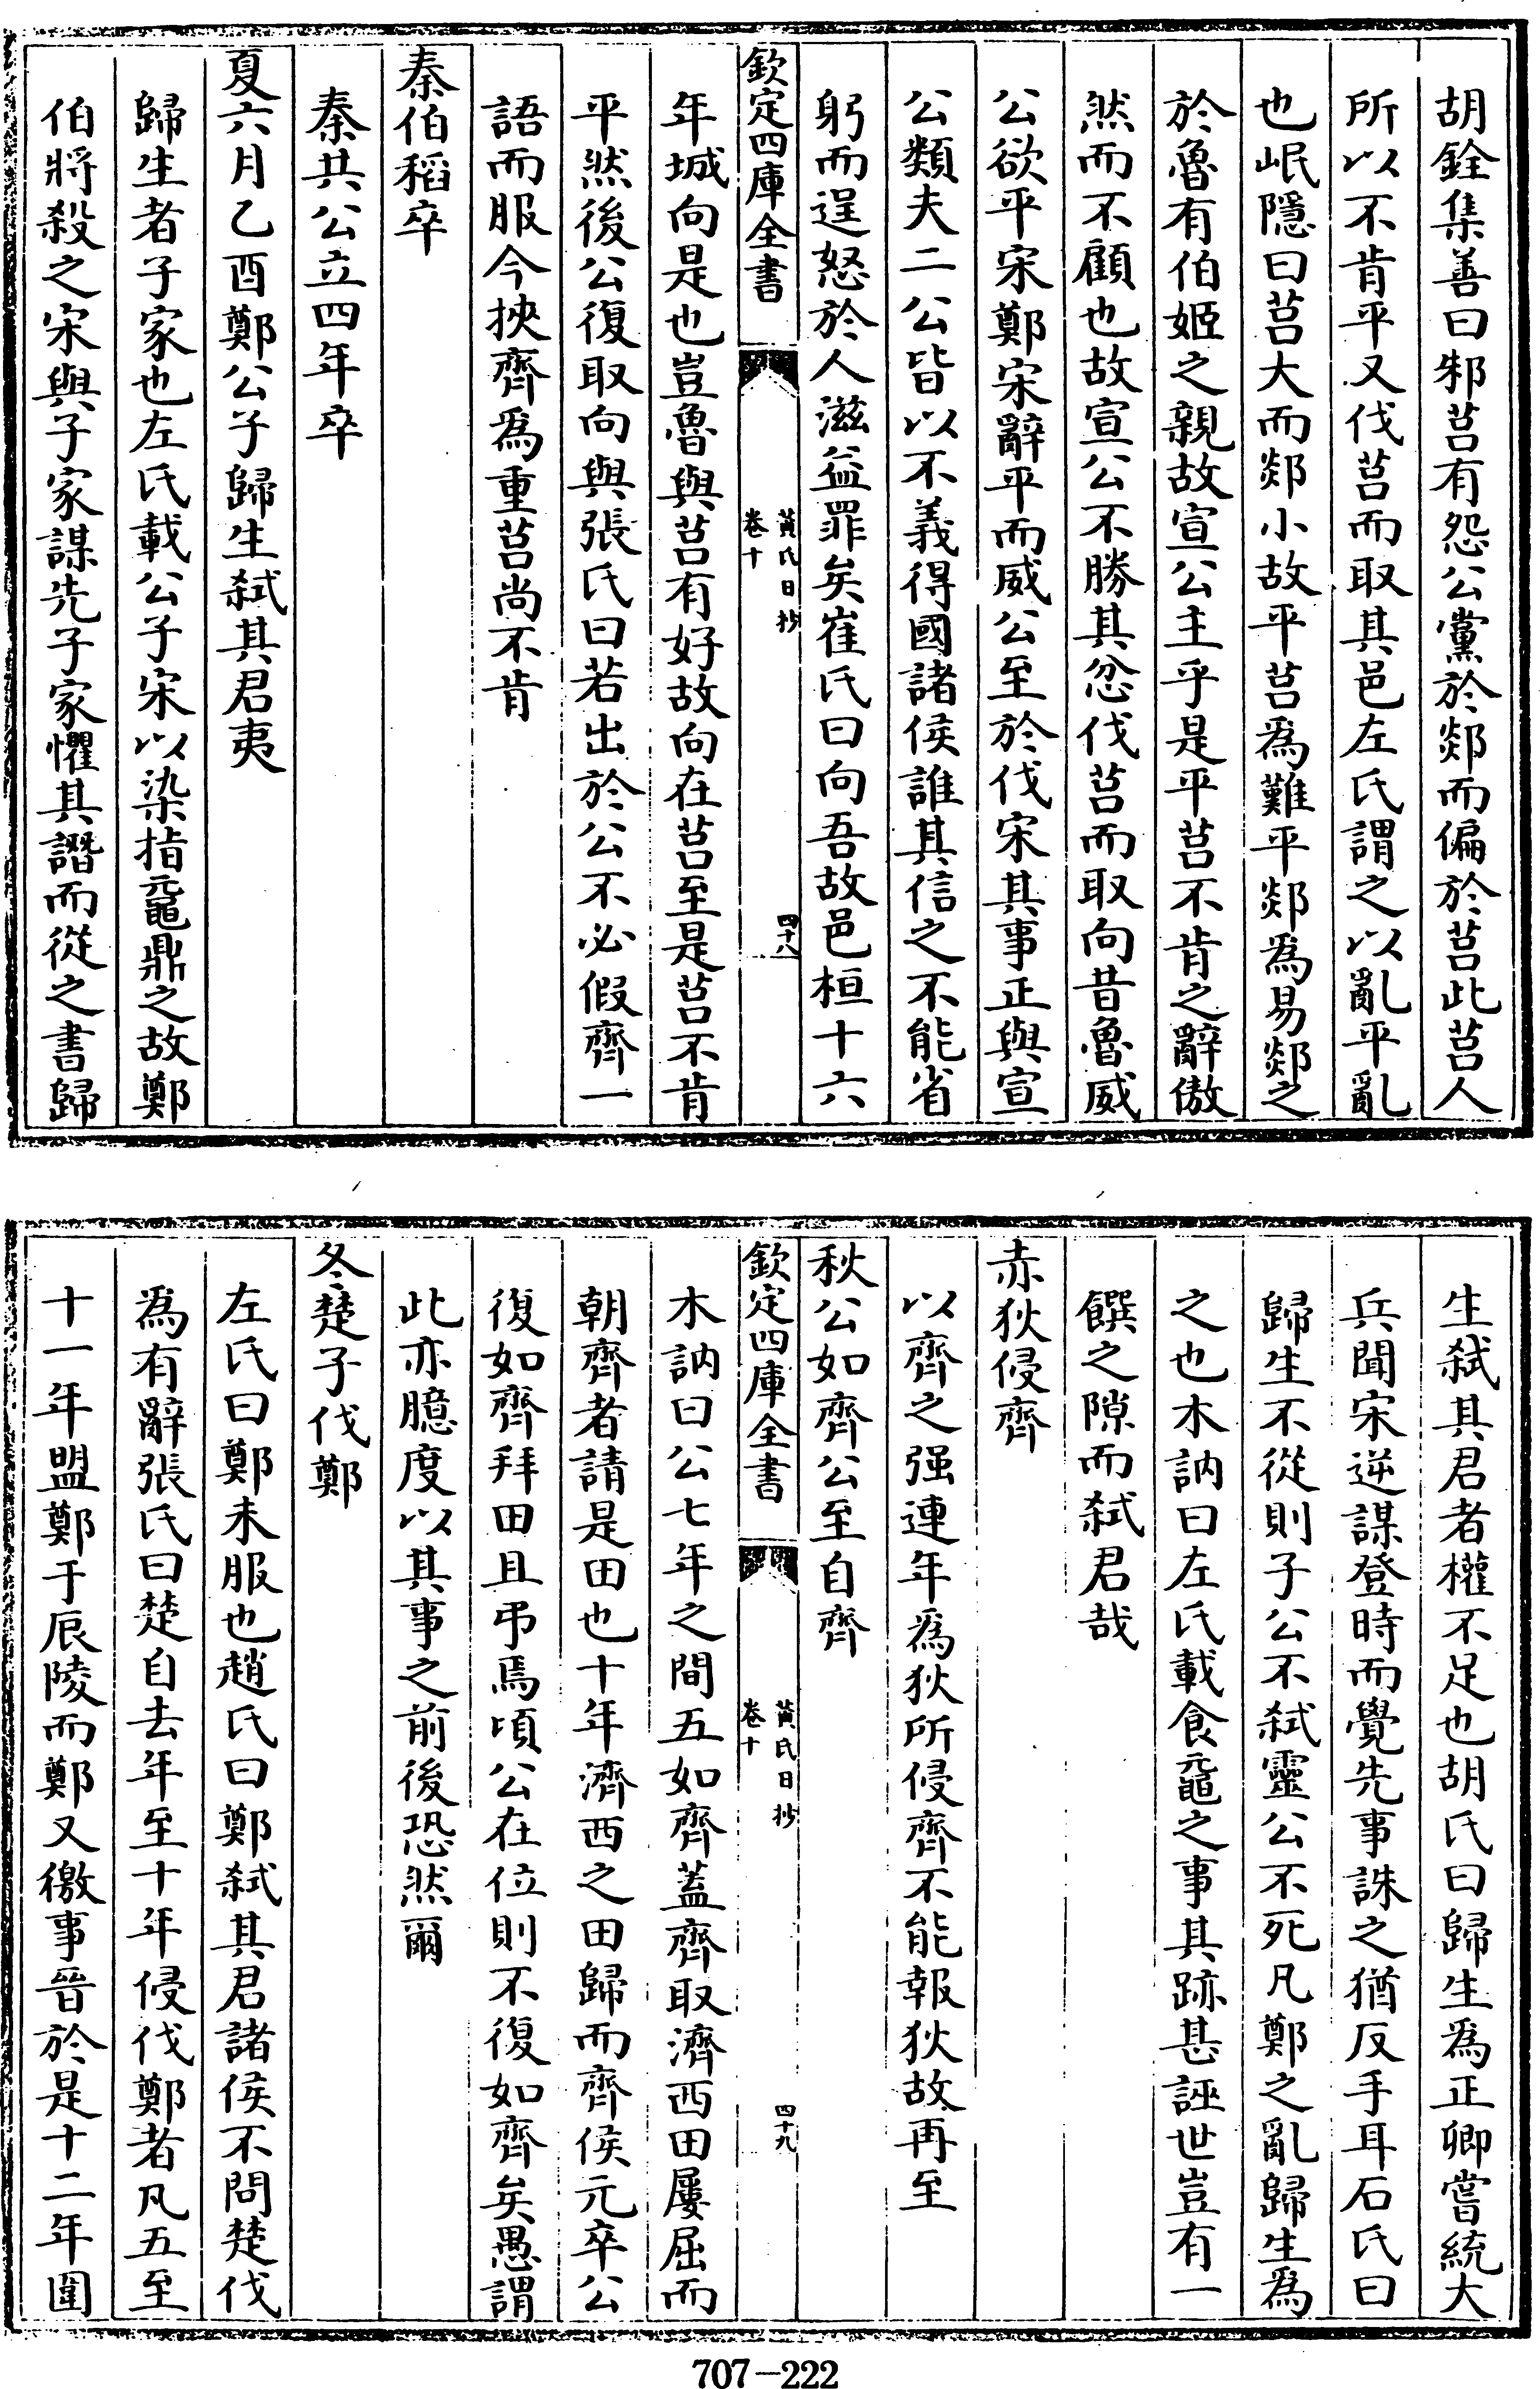 胡銓集善曰邾莒有怨公黨於郯而偏於莒此莒人
所以不肯平又伐莒而取其邑左氏謂之以亂平亂
也岷隱曰莒大而郯小故平莒爲難平郯爲易郯之
於魯有伯姬之親故宣公主乎是平莒不肯之辭傲
然而不顧也故宣公不勝其忿伐莒而取向昔魯威
公欲平宋鄭宋辭平而威公至於伐宋其事正與宣
公類夫二公皆以不義得國諸侯誰其信之不能省
躬而逞怒於人滋益罪矣崔氏曰向吾故邑桓十六
欽定四庫全書
黃氏日抄
卷十
四十八
年城向是也豈魯與莒有好故向在莒至是莒不肯
平然後公復取向與張氏曰若出於公不必假齊一
語而服今挾齊爲重莒尚不肯
秦伯稻卒
秦共公立四年卒
夏六月乙酉鄭公子歸生弑其君夷
歸生者子家也左氏載公子宋以染指黿鼎之故鄭
伯將殺之宋與子家謀先子家懼其譖而從之書歸
生弑其君者權不足也胡氏曰歸生爲正卿嘗統大
兵聞宋逆謀登時而覺先事誅之猶反手耳石氏曰
歸生不從則子公不弑靈公不死凡鄭之亂歸生爲
之也木訥曰左氏載食黿之事其跡甚誣世豈有一
饌之隙而弑君哉
赤狄侵齊
以齊之强連年爲狄所侵齊不能報狄故再至
秋公如齊公至自齊
欽定四庫全書
黃氏日抄
卷十
四十九
木訥曰公七年之間五如齊蓋齊取濟西田屢屈而
朝齊者請是田也十年濟西之田歸而齊侯元卒公
復如齊拜田且弔焉頃公在位則不復如齊矣愚謂
此亦臆度以其事之前後恐然爾
冬楚子伐鄭
左氏曰鄭未服也趙氏曰鄭弑其君諸侯不問楚伐
為有辭張氏曰楚自去年至十年侵伐鄭者凡五至
十一年盟鄭于辰陵而鄭又徼事晉於是十二年圍
707-222